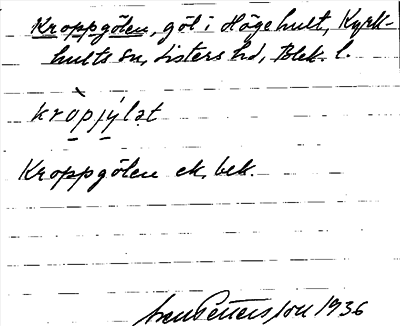 Kroppgölen, göl i Högehult, Kyrk-
hults sn, Listers hd, Blek. l.
kròpjýlət
Kroppgölen ek. bek.
Sven Pettersson 1936